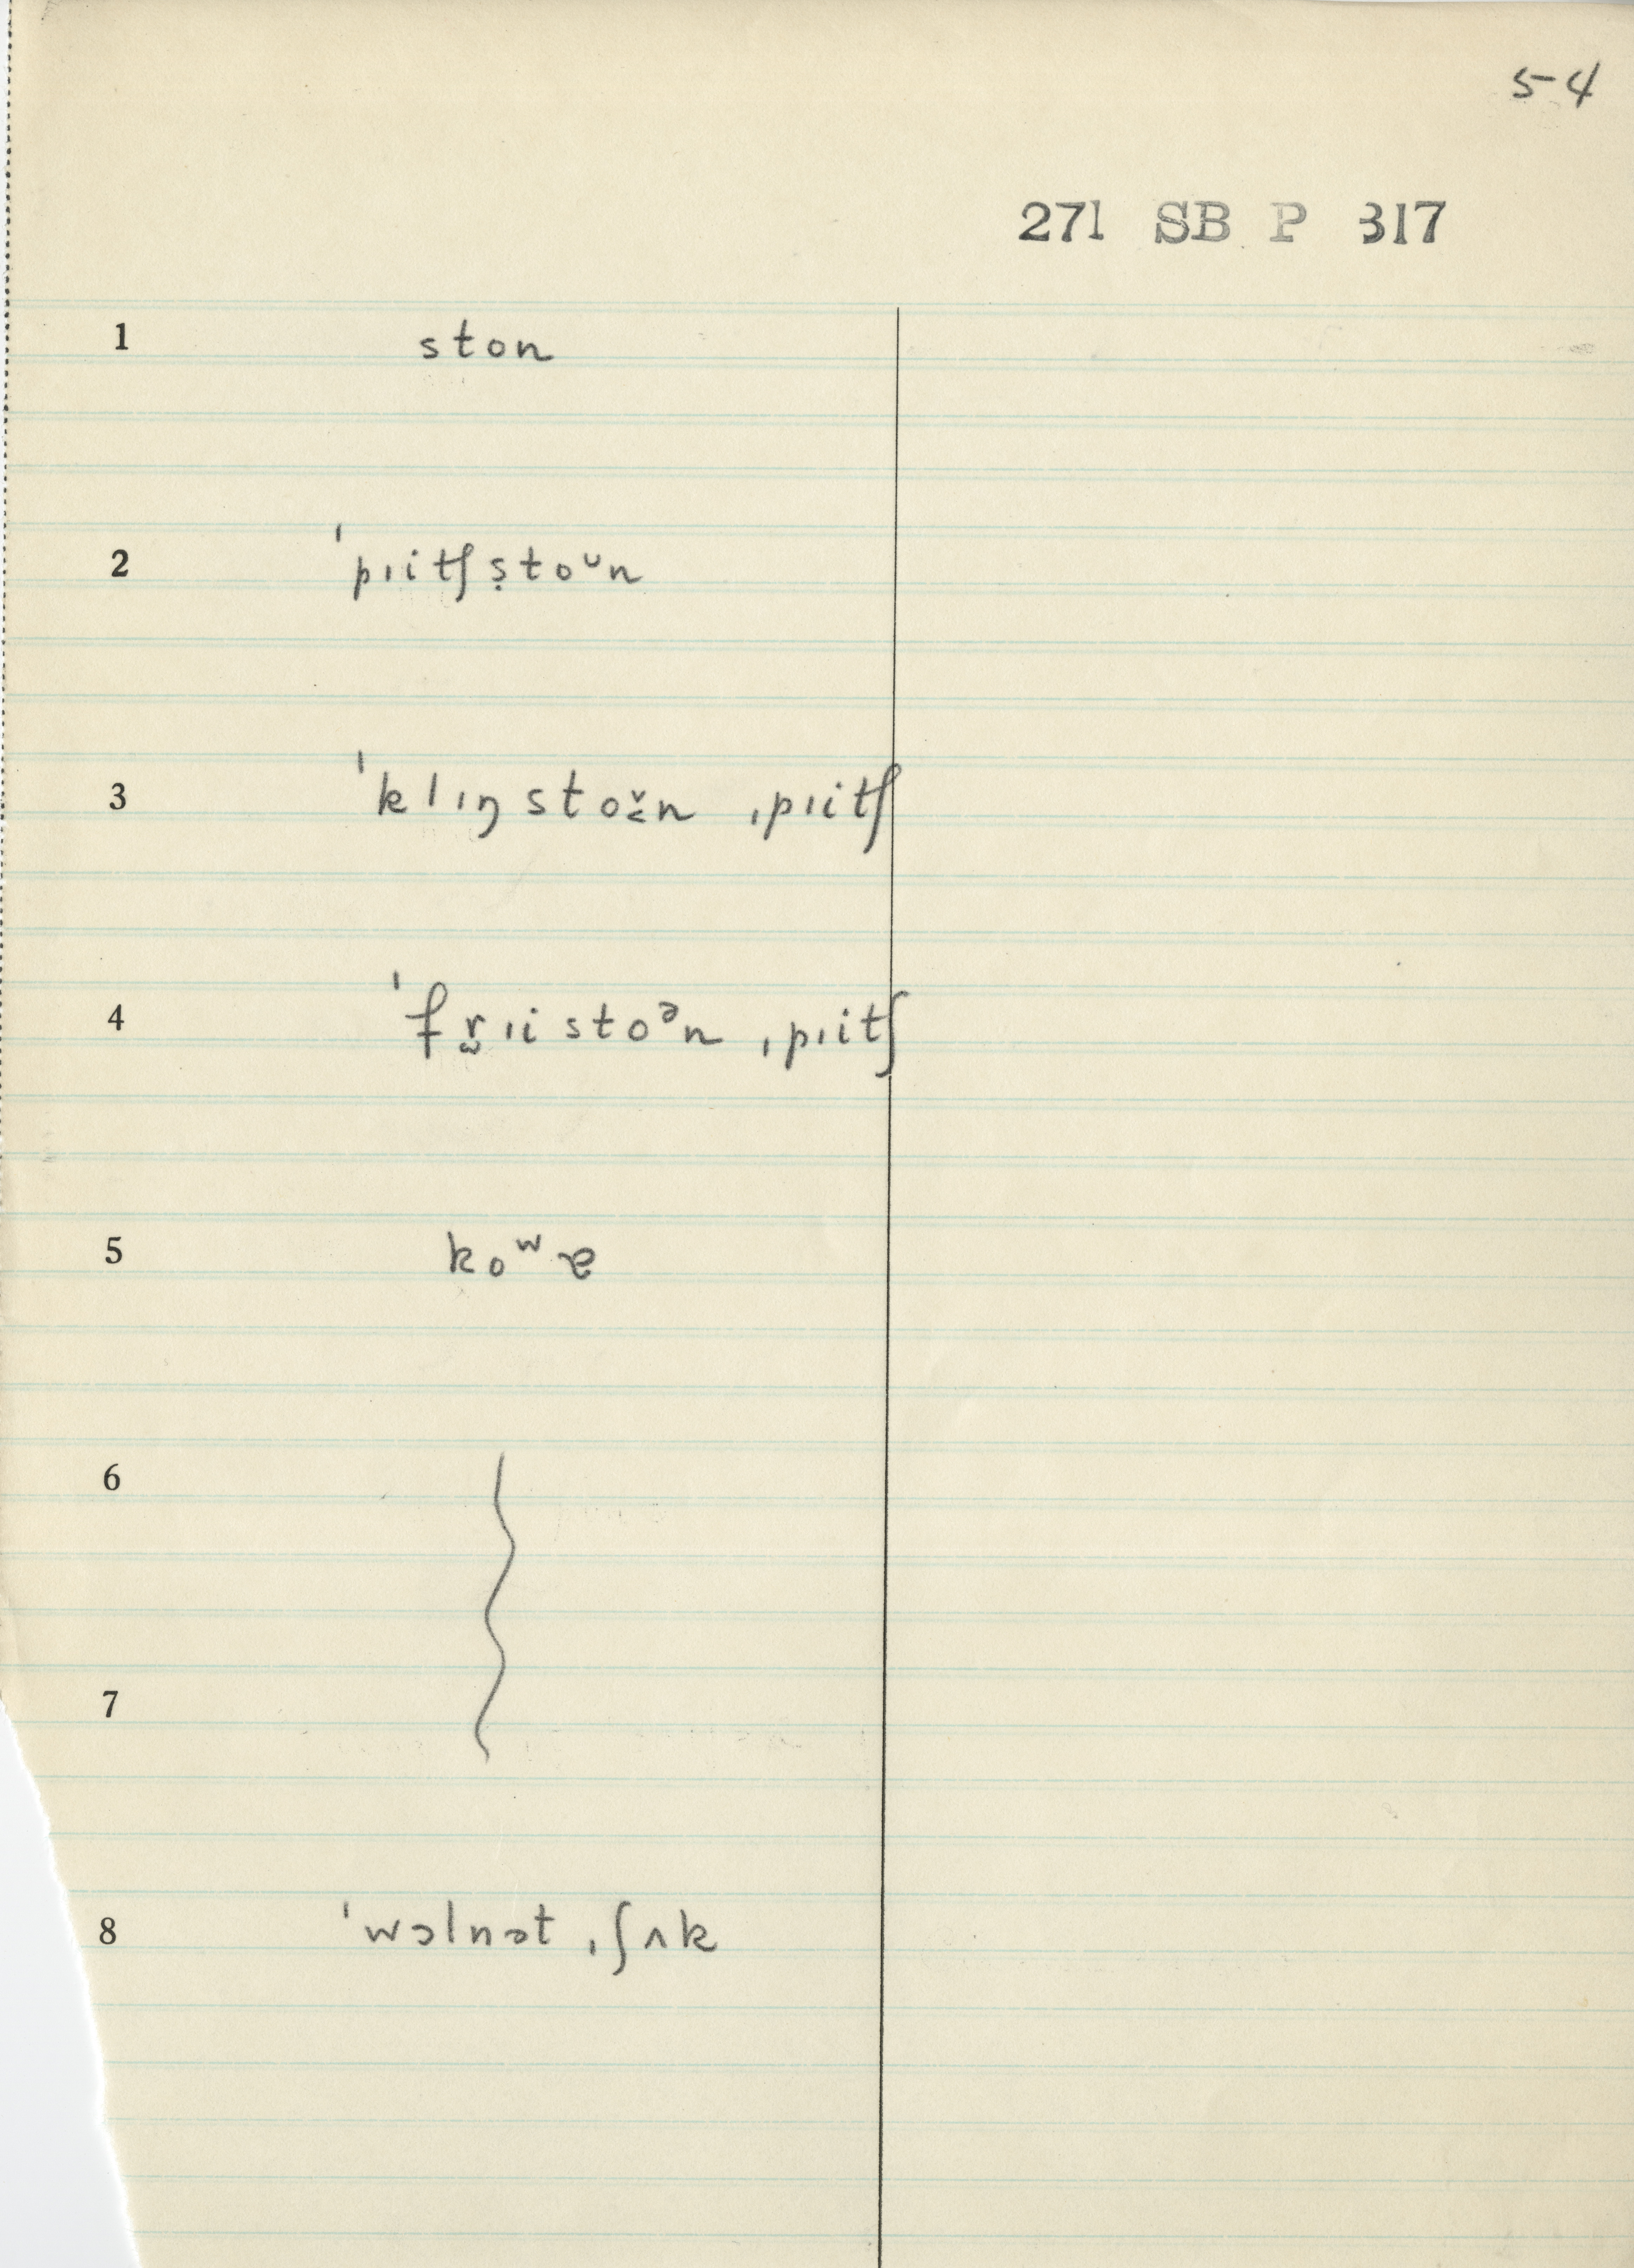 5-4
271 SB P 317
1 ston
2 ˈpɪitʃ ṣtoᵘn
3 ˈklɪŋ stoʊ̜̆n ˌpɪitʃ
4 ˈfr̫ɪi stoᵊn ˌpɪitʃ
5 koʷɐ
6
7
8 ˈwɔlnət ˌʃʌk